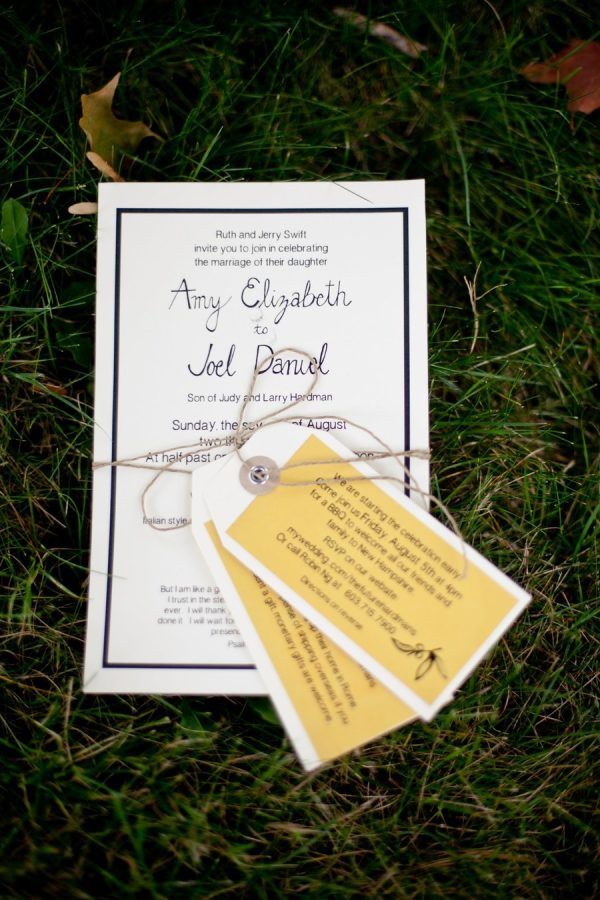 Ruth and Jerry Swift
invite you to join in celebrating
the marriage of their daughter
Amy Elizabeth
to
Joel Daniel
Son of Judy and Larry Hardman
Sunday, the of August
two
At half past
Italian style
But I am like a
I trust in the
ever. I will thank
done it. I will wait
presen
Psal
We are starting the celebration early
Come join us Friday, August 5th at 4pm
for a BBQ to welcome all our friends and
family to New Hampshire.
RSVP on our website
mywedding.com/thefuturehardmans
Or call Robin Ng at 603.715.7900
Directions on reverse
their home in
of shipping overseas, if you
a gift, monetary gifts are welcome.